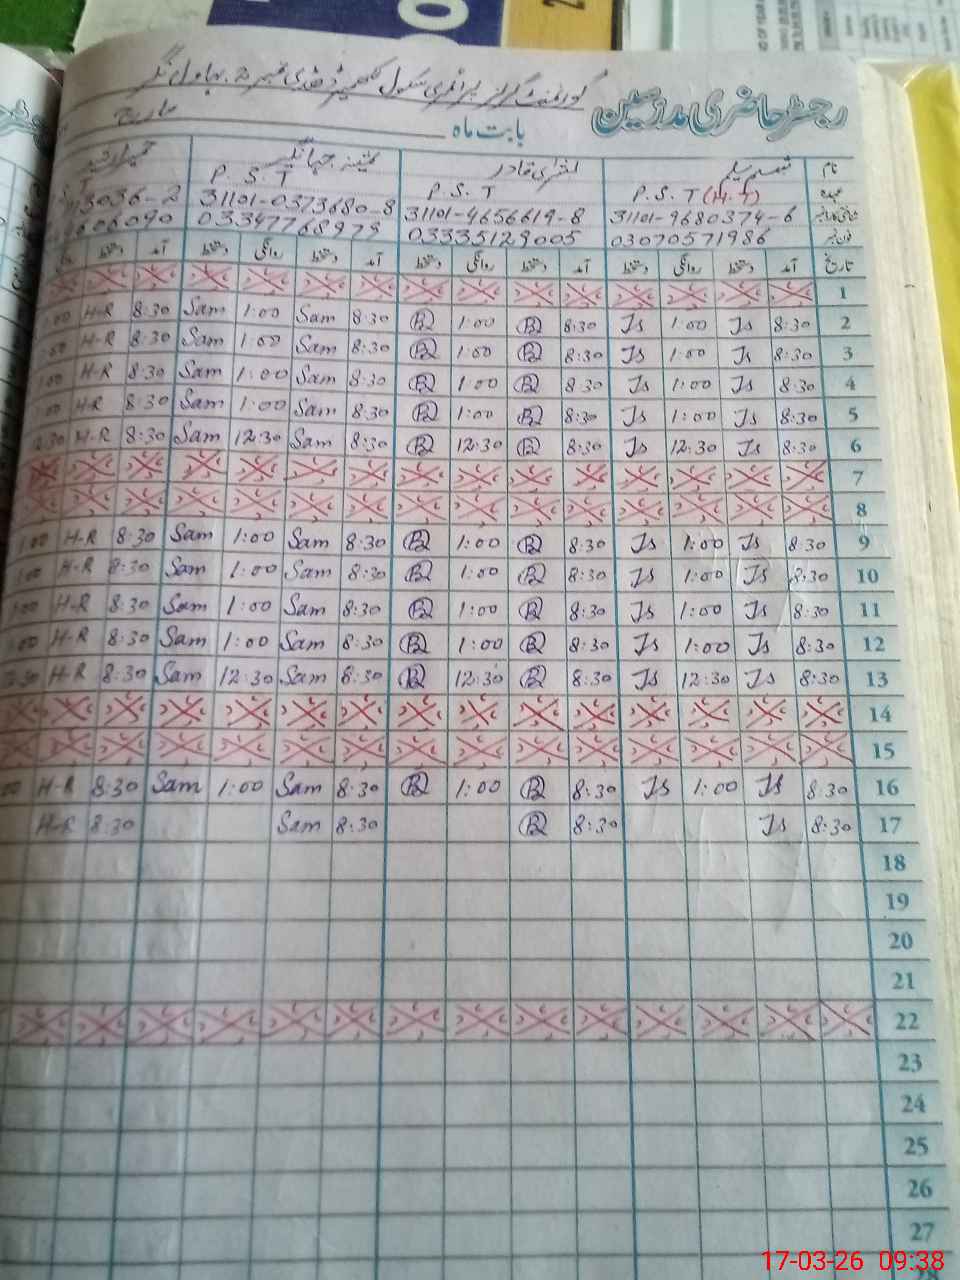 رجسٹر حاضری مدرسین
گورنمنٹ گرلز پرائمری سکول
بابت ماہ مارچ
نام شمیم سلیم
عہدہ P.S.T (H.T) P.S.T P.S.T
31101-9680374-6 31101-4656619-8 31101-0373680-8 3036-2
03070571986 03335129005 03347768979 606090
تاریخ آمد دستخط روانگی دستخط آمد دستخط روانگی دستخط آمد دستخط روانگی دستخط آمد دستخط
1
2 8:30 Js 1:00 Js 8:30 B 1:00 B 8:30 Sam 1:00 Sam 8:30 H-R :00
3 8:30 Js 1:00 Js 8:30 B 1:00 B 8:30 Sam 1:00 Sam 8:30 H-R :00
4 8:30 Js 1:00 Js 8:30 B 1:00 B 8:30 Sam 1:00 Sam 8:30 H-R :00
5 8:30 Js 1:00 Js 8:30 B 1:00 B 8:30 Sam 1:00 Sam 8:30 H-R :00
6 8:30 Js 12:30 Js 8:30 B 12:30 B 8:30 Sam 12:30 Sam 8:30 H-R 2:30
7
8
9 8:30 Js 1:00 Js 8:30 B 1:00 B 8:30 Sam 1:00 Sam 8:30 H-R 1:00
10 8:30 Js 1:00 Js 8:30 B 1:00 B 8:30 Sam 1:00 Sam 8:30 H-R :00
11 8:30 Js 1:00 Js 8:30 B 1:00 B 8:30 Sam 1:00 Sam 8:30 H-R :00
12 8:30 Js 1:00 Js 8:30 B 1:00 B 8:30 Sam 1:00 Sam 8:30 H-R :00
13 8:30 Js 12:30 Js 8:30 B 12:30 B 8:30 Sam 12:30 Sam 8:30 H-R :30
14
15
16 8:30 Js 1:00 Js 8:30 B 1:00 B 8:30 Sam 1:00 Sam 8:30 H-R 00
17 8:30 Js 8:30 B 8:30 Sam 8:30 H-R
18
19
20
21
22
23
24
25
26
27
17-03-26 09:38